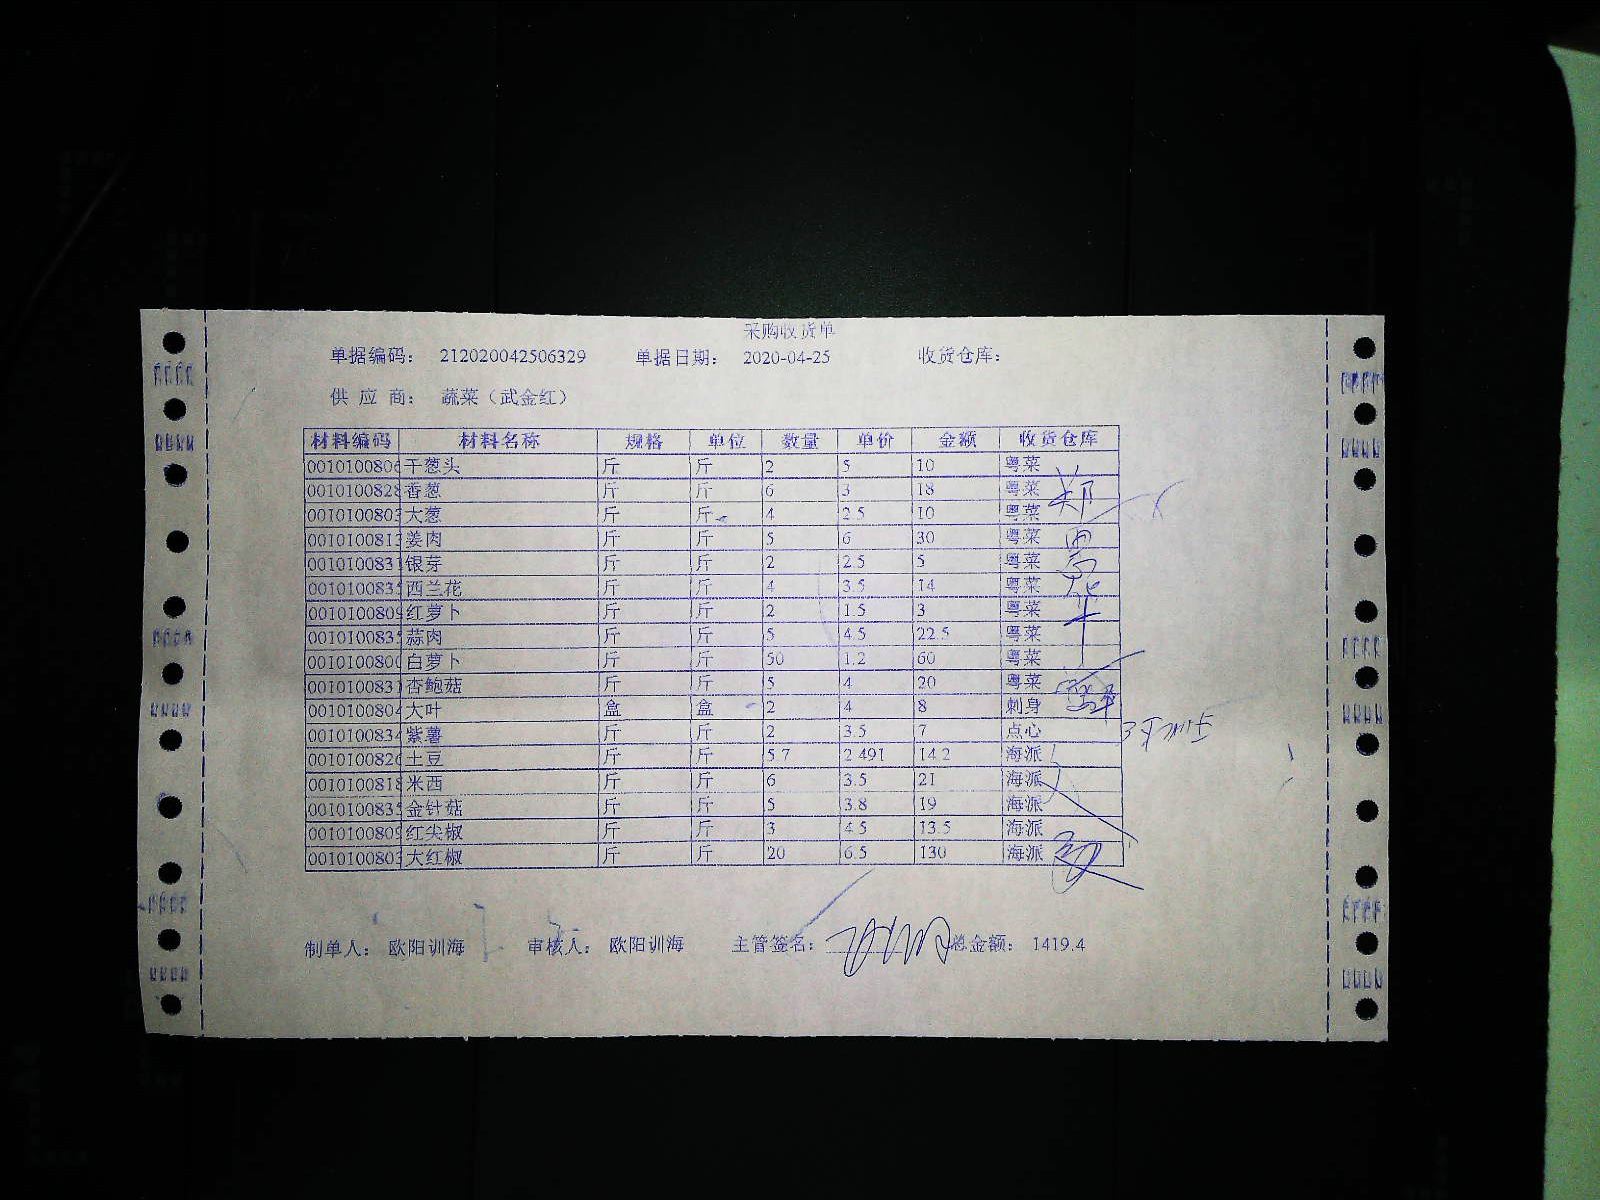 采购收货单
单据编码： 212020042506329 单据日期： 2020-04-25 收货仓库：
供 应 商： 蔬菜（武金红）
材料编码 材料名称 规格 单位 数量 单价 金额 收货仓库
0010100806 干葱头 斤 斤 2 5 10 粤菜
0010100828 香葱 斤 斤 6 3 18 粤菜
0010100803 大葱 斤 斤 4 2.5 10 粤菜
0010100813 姜肉 斤 斤 5 6 30 粤菜
0010100831 银芽 斤 斤 2 2.5 5 粤菜
0010100835 西兰花 斤 斤 4 3.5 14 粤菜
0010100809 红萝卜 斤 斤 2 1.5 3 粤菜
0010100835 蒜肉 斤 斤 5 4.5 22.5 粤菜
0010100800 白萝卜 斤 斤 50 1.2 60 粤菜
0010100831 杏鲍菇 斤 斤 5 4 20 粤菜
0010100804 大叶 盒 盒 2 4 8 刺身
0010100834 紫薯 斤 斤 2 3.5 7 点心
0010100826 土豆 斤 斤 5.7 2.491 14.2 海派
0010100818 米西 斤 斤 6 3.5 21 海派
0010100835 金针菇 斤 斤 5 3.8 19 海派
0010100809 红尖椒 斤 斤 3 4.5 13.5 海派
0010100803 大红椒 斤 斤 20 6.5 130 海派
制单人： 欧阳训海 审核人： 欧阳训海 主管签名： 总金额： 1419.4